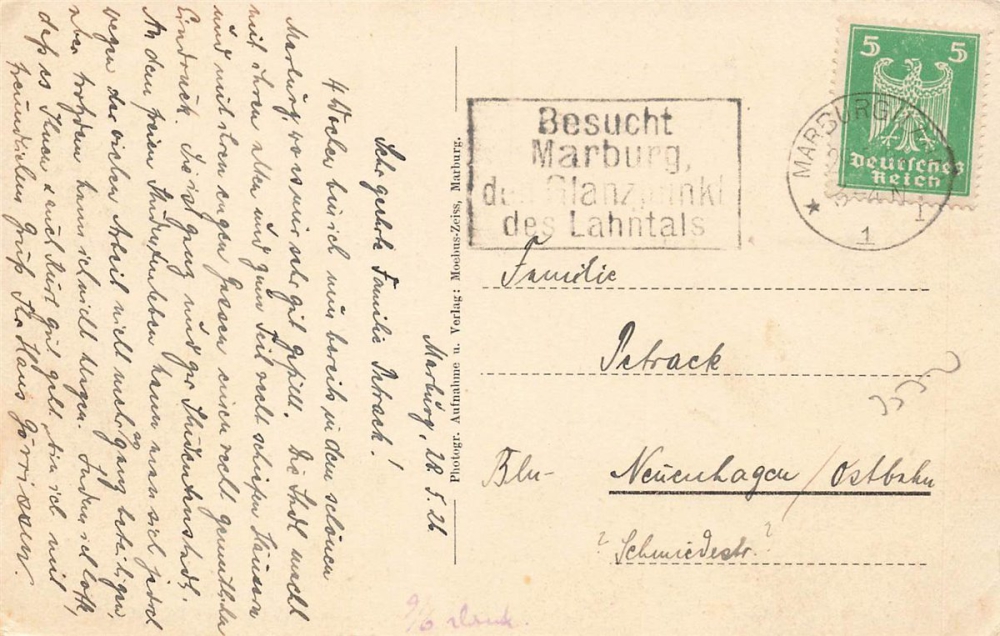 Marburg, 28.5.26
Sehr geehrte Familie Petrack!
4 Wochen bin ich nun bereits in dem schönen
Marburg, wo es mir sehr gut gefällt. Die Stadt macht
mit ihren alten und zum Teil recht schiefen Häusern
und mit ihren engen Gassen einen recht gemütlichen
Eindruck. Sie ist ganz und gar Studentenstadt.
An dem freien Studentenleben kann man sich jedoch
wegen der vielen Arbeit nicht mehr so ganz beteiligen,
aber trotzdem kann ich nicht klagen. Indem ich hoffe,
daß es Ihnen u. auch Kurt gut geht, bin ich mit
freundlichem Gruß Ihr Hans Görrissen.
Photogr. Aufnahme u. Verlag: Moebus-Zeiss, Marburg.
Besucht
Marburg,
den Glanzpunkt
des Lahntals
5 5
Deutsches
Reich
MARBURG
1
Familie
Petrack
Bln-
Neuenhagen/Ostbahn
? Schmiedestr. ?
9/6 Dank.